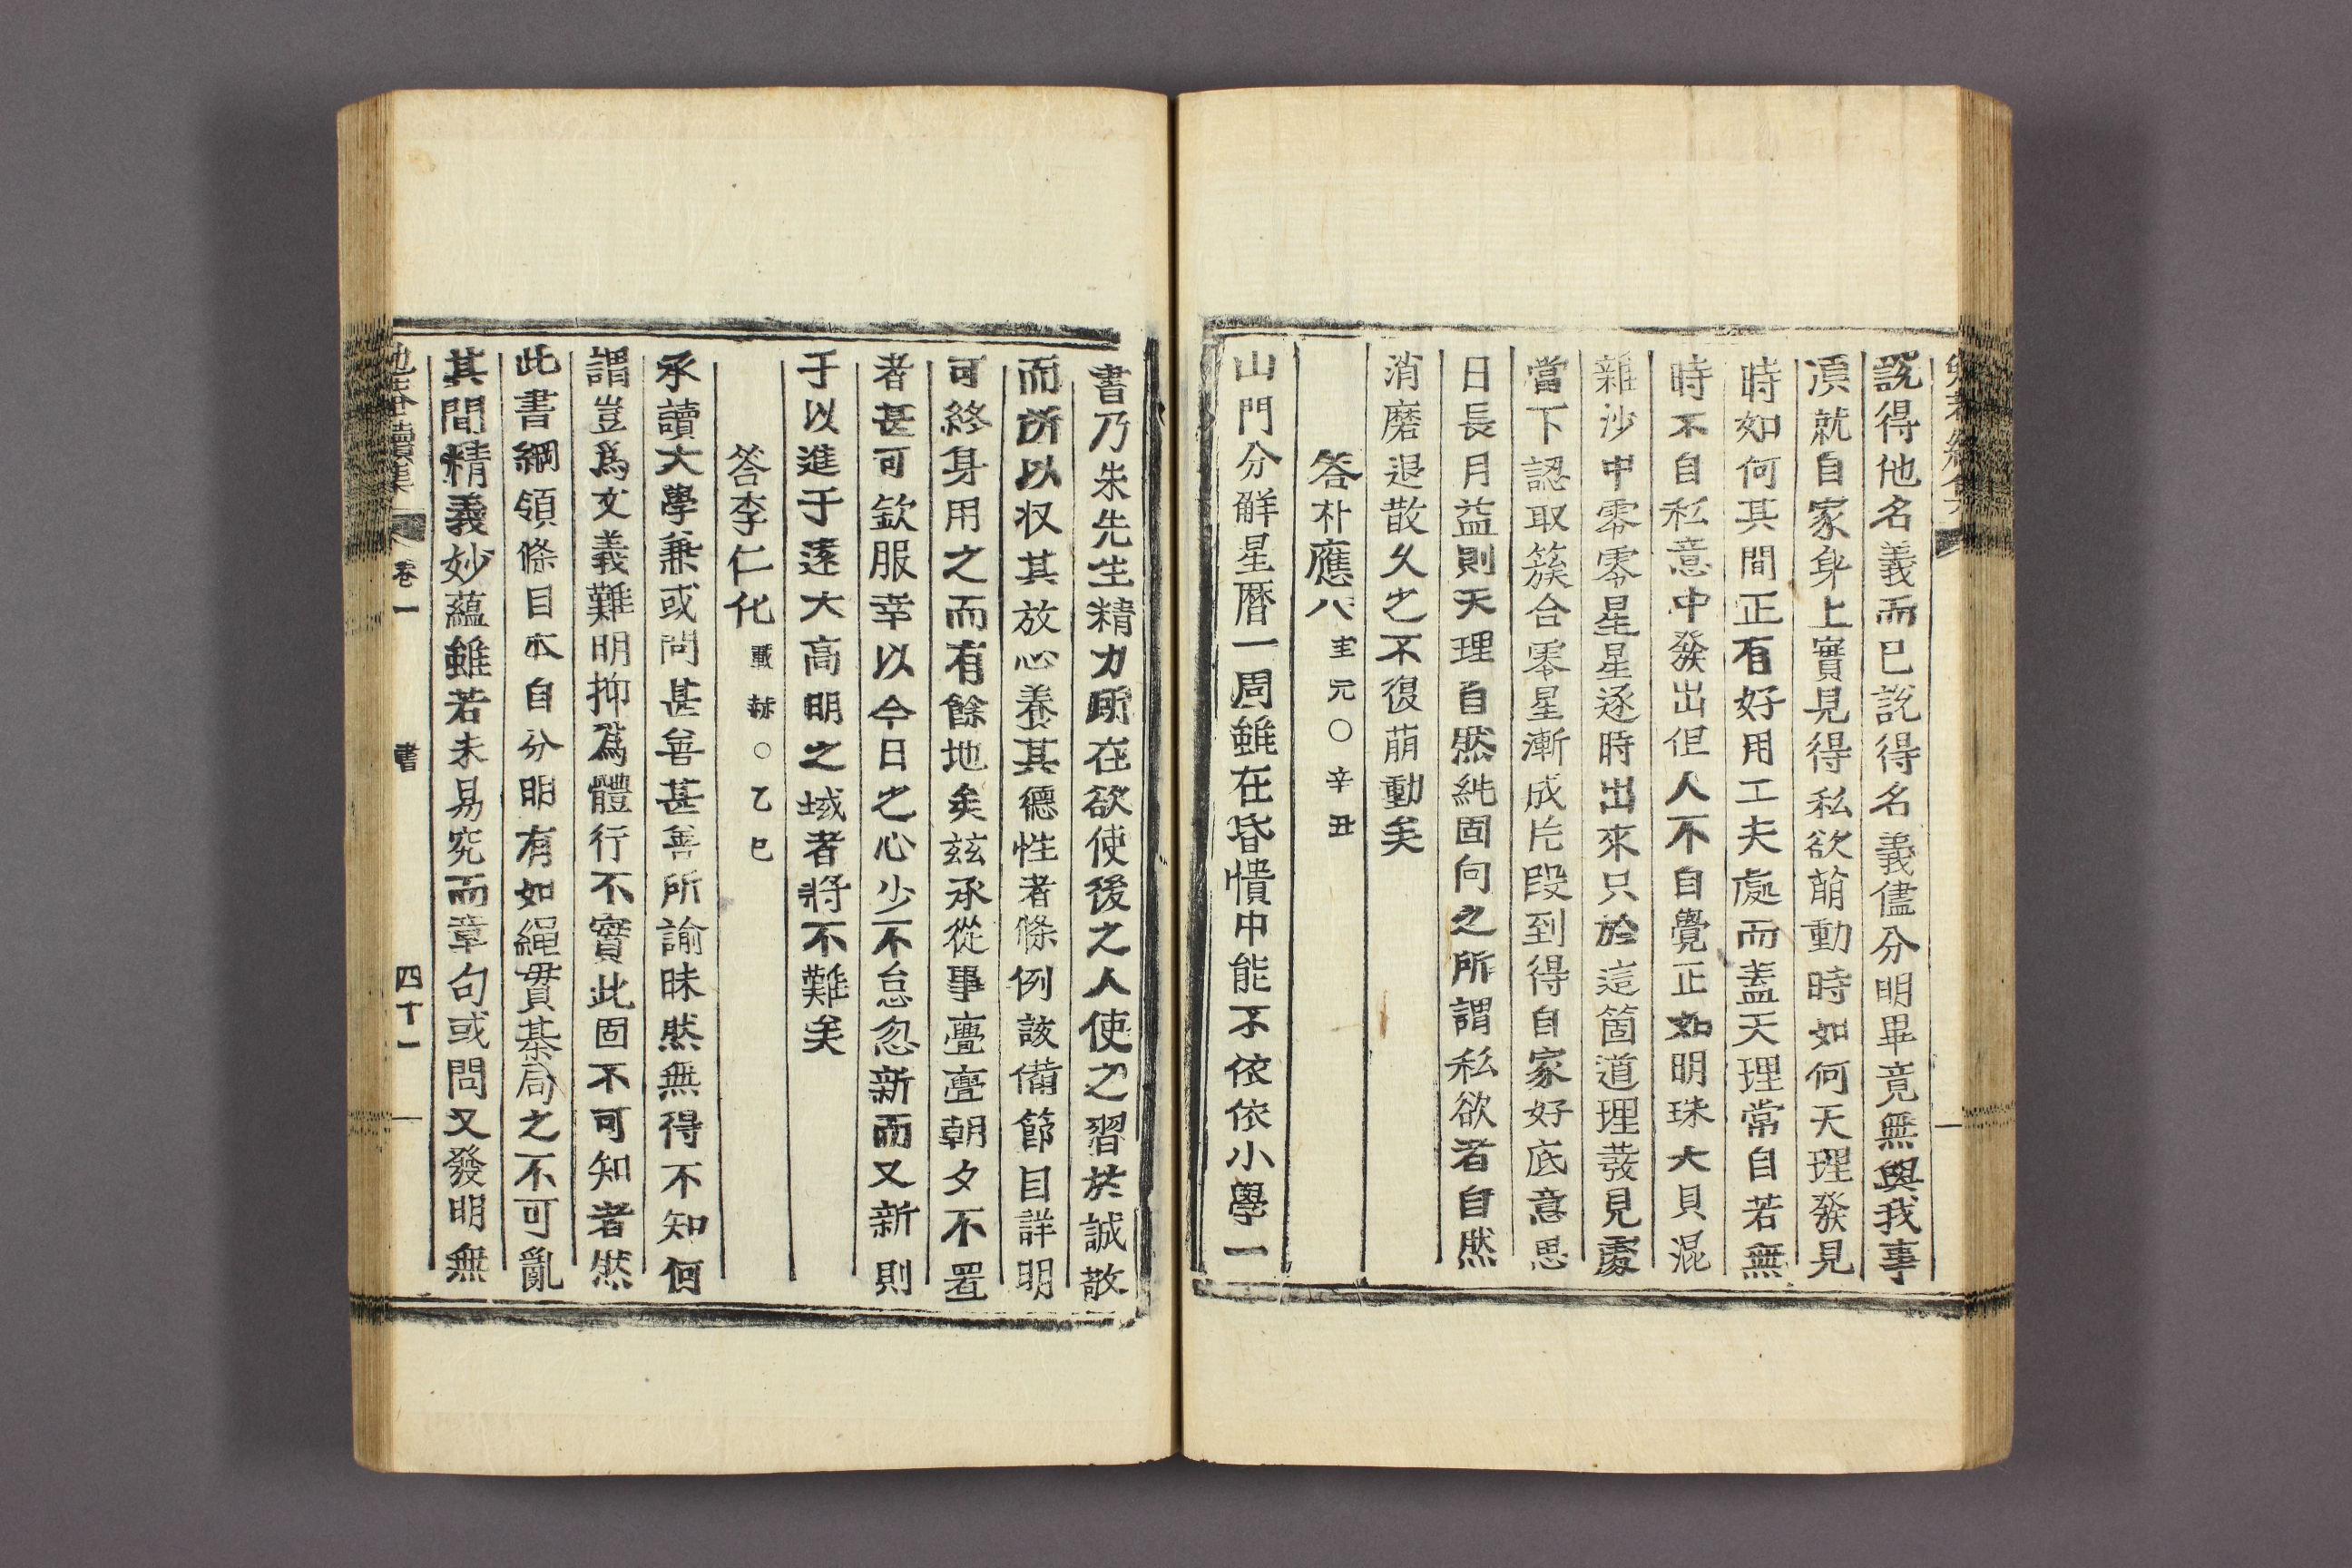 說得他名義而已說得名義儘分明畢竟無與我事
湏就自家身上實見得私欲萠動時如何天理發見
時如何其間正有好用工夫處而盖天理常自若無
時不自私意中發出但人不自覺正如明珠大貝混
雜沙中零零星星逐時出來只於這箇道理發見處
當下認取簇合零星漸成片段到得自家好底意思
日長月益則天理自然純固向之所謂私欲者自然
消磨退散久之不復萠動矣
答朴應八 圭元○辛丑
山門分觧星曆一周雖在昏憒中能不依依小學一
書乃朱先生精力所在欲使後之人使之習於誠敬
而所以収其放心養其德性者條例該備節目詳明
可終身用之而有餘地矣玆承從事亹亹朝夕不置
者甚可欽服幸以今日之心少不怠忽新而又新則
于以進于遠大高明之域者將不難矣
答李仁化 載赫○乙巳
承讀大學兼或問甚善甚善所諭昧然無得不知何
謂豈爲文義難明抑爲體行不實此固不可知者然
此書綱領條目本自分明有如繩貫棊局之不可亂
其間精義妙蘊雖若未易究而章句或問又發明無
續集 卷一 書 四十一